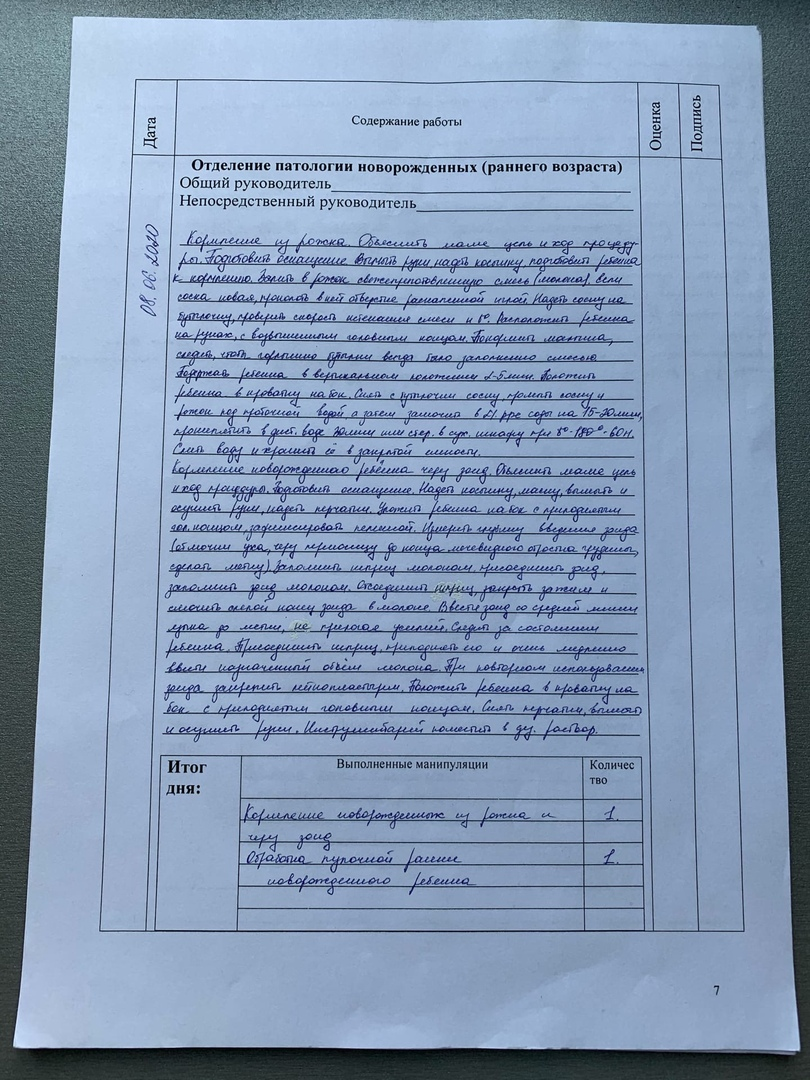 Дата
Содержание работы
Оценка
Подпись
Отделение патологии новорожденных (раннего возраста)
Общий руководитель
Непосредственный руководитель
08.06.2020
Кормление из рожка. Объяснить маме цель и ход процеду-
ры. Подготовить оснащение. Вымыть руки, надеть косынку, подготовить ребенка
к кормлению. Залить в рожок свежеприготовленную смесь (молоко), если
соска новая, проколоть в ней отверстие раскаленной иглой. Надеть соску на
бутылочку, проверить скорость истечения смеси и t°. Расположить ребенка
на руках, с возвышенным головным концом. Покормить малыша,
следить, чтобы горлышко бутылки всегда было заполнено смесью
Подержать ребенка в вертикальном положении 2-5 мин. Положить
ребенка в кроватку на бок. Снять с бутылочки соску, промыть соску и
рожок под проточной водой, а затем замочить в 2% р-ре соды на 15-20 мин,
прокипятить в дист. воде 30 мин или стер. в сух. шкафу при t°-180°-60 м.
Слить воду и хранить её в закрытой емкости.
Кормление новорожденного ребёнка через зонд. Объяснить маме цель
и ход процедуры. Подготовить оснащение. Надеть косынку, маску, вымыть и
осушить руки, надеть перчатки. Уложить ребенка на бок с приподнятым
гол. концом, зафиксировать пеленкой. Измерить глубину введения зонда
(от мочки уха, через переносицу до конца мечевидного отростка грудины,
сделать метку). Заполнить шприц молоком, присоединить зонд,
заполнить зонд молоком. Отсоединить шприц, закрыть зажим и
смочить слепой конец зонда в молоке. Ввести зонд со средней линии
языка до метки, не прилагая усилий. Следить за состоянием
ребенка. Присоединить шприц, приподнять его и очень медленно
ввести назначенный объём молока. При повторном использовании
зонда закрепить лейкопластырем. Положить ребенка в кроватку на
бок с приподнятым головным концом. Снять перчатки, вымыть
и осушить руки. Инструментарий поместить в дез. раствор.
Итог
дня:
Выполненные манипуляции
Количес
тво
Кормление новорожденных из рожка и
через зонд
1.
Обработка пупочной ранки
1.
новорожденного ребенка
7